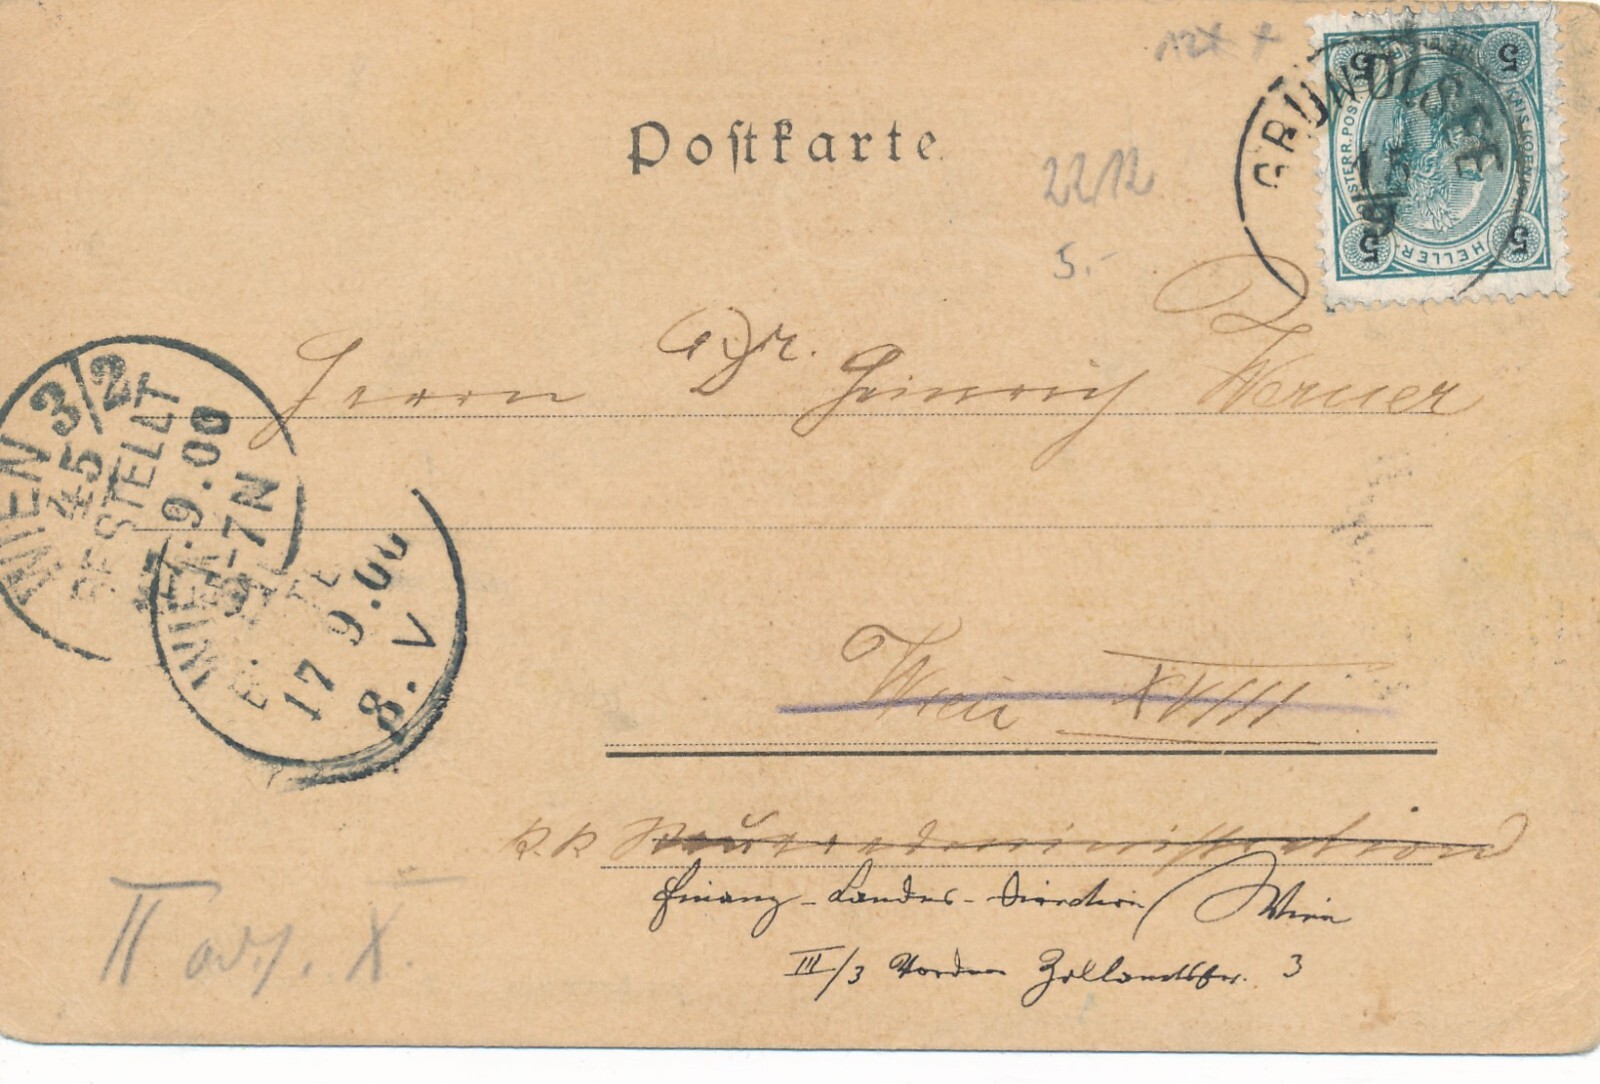 Postkarte
22/12
5.-
GRUNDLSEE
15
9
5 5
5 5
HELLER
Herrn Dr. Heinrich Werner
WIEN 3/2
45
BESTELLT
9.00
7N
WIEN
17 9.00
8.V
Wien XVIII
k.k
Finanz-Landes-Direction / Wien
III/3 Vordere Zollamtsstr. 3
II X.